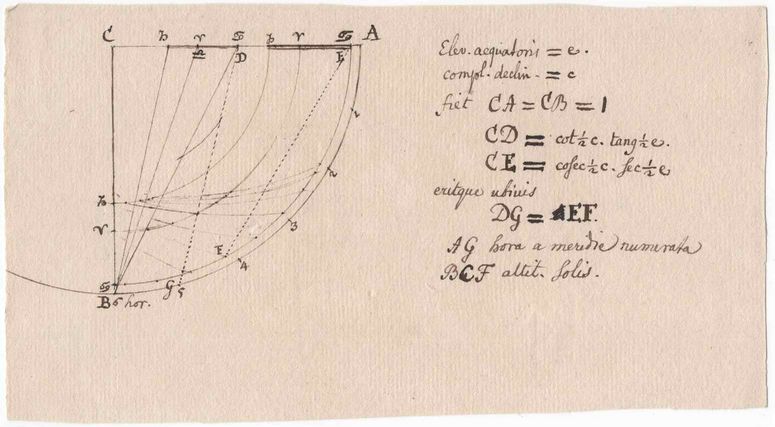 C ♑ ♈ ♋ ♑ ♈ ♋ A
♎ D E
1
2
♑
3
♈
F 4
♋
G 5
B 6 hor.
Elev. aequatoris = e.
compl. declin. = c
fiet CA = CB = 1
CD = cot ½ c. tang ½ e.
CE = cosec ½ c. sec ½ e
eritque ubivis
DG = EF.
AG hora a meridie numerata
BCF altit. solis.